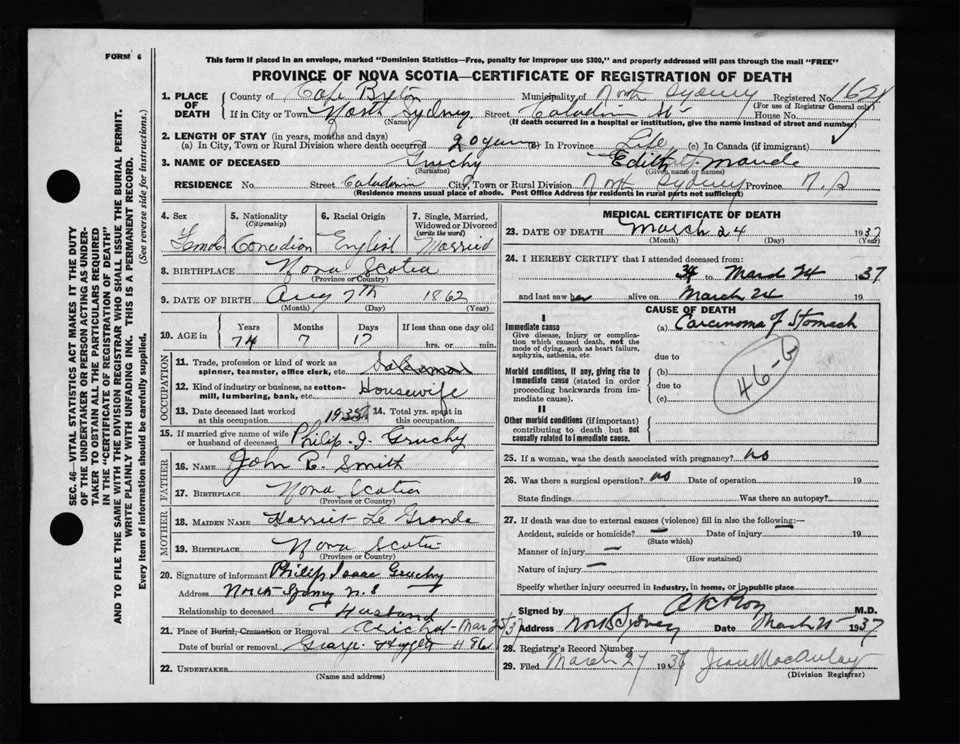 FORM 6
This form if placed in an envelope, marked "Dominion Statistics—Free, penalty for improper use $300," and properly addressed will pass through the mail "FREE"
PROVINCE OF NOVA SCOTIA—CERTIFICATE OF REGISTRATION OF DEATH
1. PLACE OF DEATH
County of Cape Breton Municipality of North Sydney Registered No.
(For use of Registrar General only)
If in City or Town North Sydney Street House No.
(Name) (If death occurred in a hospital or institution, give the name instead of street and number)
2. LENGTH OF STAY (in years, months and days)
(a) In City, Town or Rural Division where death occurred 20 years (b) In Province Life (c) In Canada (if immigrant)
3. NAME OF DECEASED Gruchy Edith Maude
(Surname) (Given name or names)
RESIDENCE No. Street City, Town or Rural Division North Sydney Province N.S
(Residence means usual place of abode. Post Office Address for residents in rural parts not sufficient)
SEC. 46—VITAL STATISTICS ACT MAKES IT THE DUTY
OF THE UNDERTAKER OR PERSON ACTING AS UNDER-
TAKER TO OBTAIN ALL THE PARTICULARS REQUIRED
IN THE "CERTIFICATE OF REGISTRATION OF DEATH"
AND TO FILE THE SAME WITH THE DIVISION REGISTRAR WHO SHALL ISSUE THE BURIAL PERMIT.
WRITE PLAINLY WITH UNFADING INK. THIS IS A PERMANENT RECORD.
Every item of information should be carefully supplied. (See reverse side for instructions.)
4. Sex
5. Nationality (Citizenship) Canadian
6. Racial Origin English
7. Single, Married, Widowed or Divorced (write the word) Married
8. BIRTHPLACE Nova Scotia
(Province or Country)
9. DATE OF BIRTH Aug 7th 1862
(Month) (Day) (Year)
10. AGE in Years 74 Months 7 Days 17 If less than one day hrs. or min.
OCCUPATION
11. Trade, profession or kind of work as spinner, teamster, office clerk, etc.
12. Kind of industry or business, as cotton-mill, lumbering, bank, etc. Housewife
13. Date deceased last worked at this occupation 14. Total yrs. spent in this occupation
15. If married give name of wife or husband of deceased Philip I. Gruchy
FATHER
16. NAME John Smith
17. BIRTHPLACE Nova Scotia
(Province or Country)
MOTHER
18. MAIDEN NAME Harriet Le Grande
19. BIRTHPLACE Nova Scotia
(Province or Country)
20. Signature of informant Philip Isaac Gruchy
Address North Sydney N.S
Relationship to deceased Husband
21. Place of Burial, Cremation or Removal Mar 25/37
Date of burial or removal
22. UNDERTAKER
(Name and address)
MEDICAL CERTIFICATE OF DEATH
23. DATE OF DEATH March 24 1937
(Month) (Day) (Year)
24. I HEREBY CERTIFY that I attended deceased from:
to March 24 1937
and last saw her alive on March 24 19
CAUSE OF DEATH
I
Immediate cause
Give disease, injury or complication which caused death, not the mode of dying, such as heart failure, asphyxia, asthenia, etc.
(a) Carcinoma of Stomach
due to
Morbid conditions, if any, giving rise to immediate cause (stated in order proceeding backwards from immediate cause).
(b)
due to
(c)
46-B
II
Other morbid conditions (if important) contributing to death but not causally related to immediate cause.
25. If a woman, was the death associated with pregnancy? no
26. Was there a surgical operation? no Date of operation 19
State findings Was there an autopsy?
27. If death was due to external causes (violence) fill in also the following:—
Accident, suicide or homicide? — Date of injury 19
(State which)
Manner of injury —
(How sustained)
Nature of injury —
Specify whether injury occurred in industry, in home, or in public place
Signed by M.D.
Address North Sydney Date March 1937
28. Registrar's Record Number
29. Filed March 27 19
(Division Registrar)